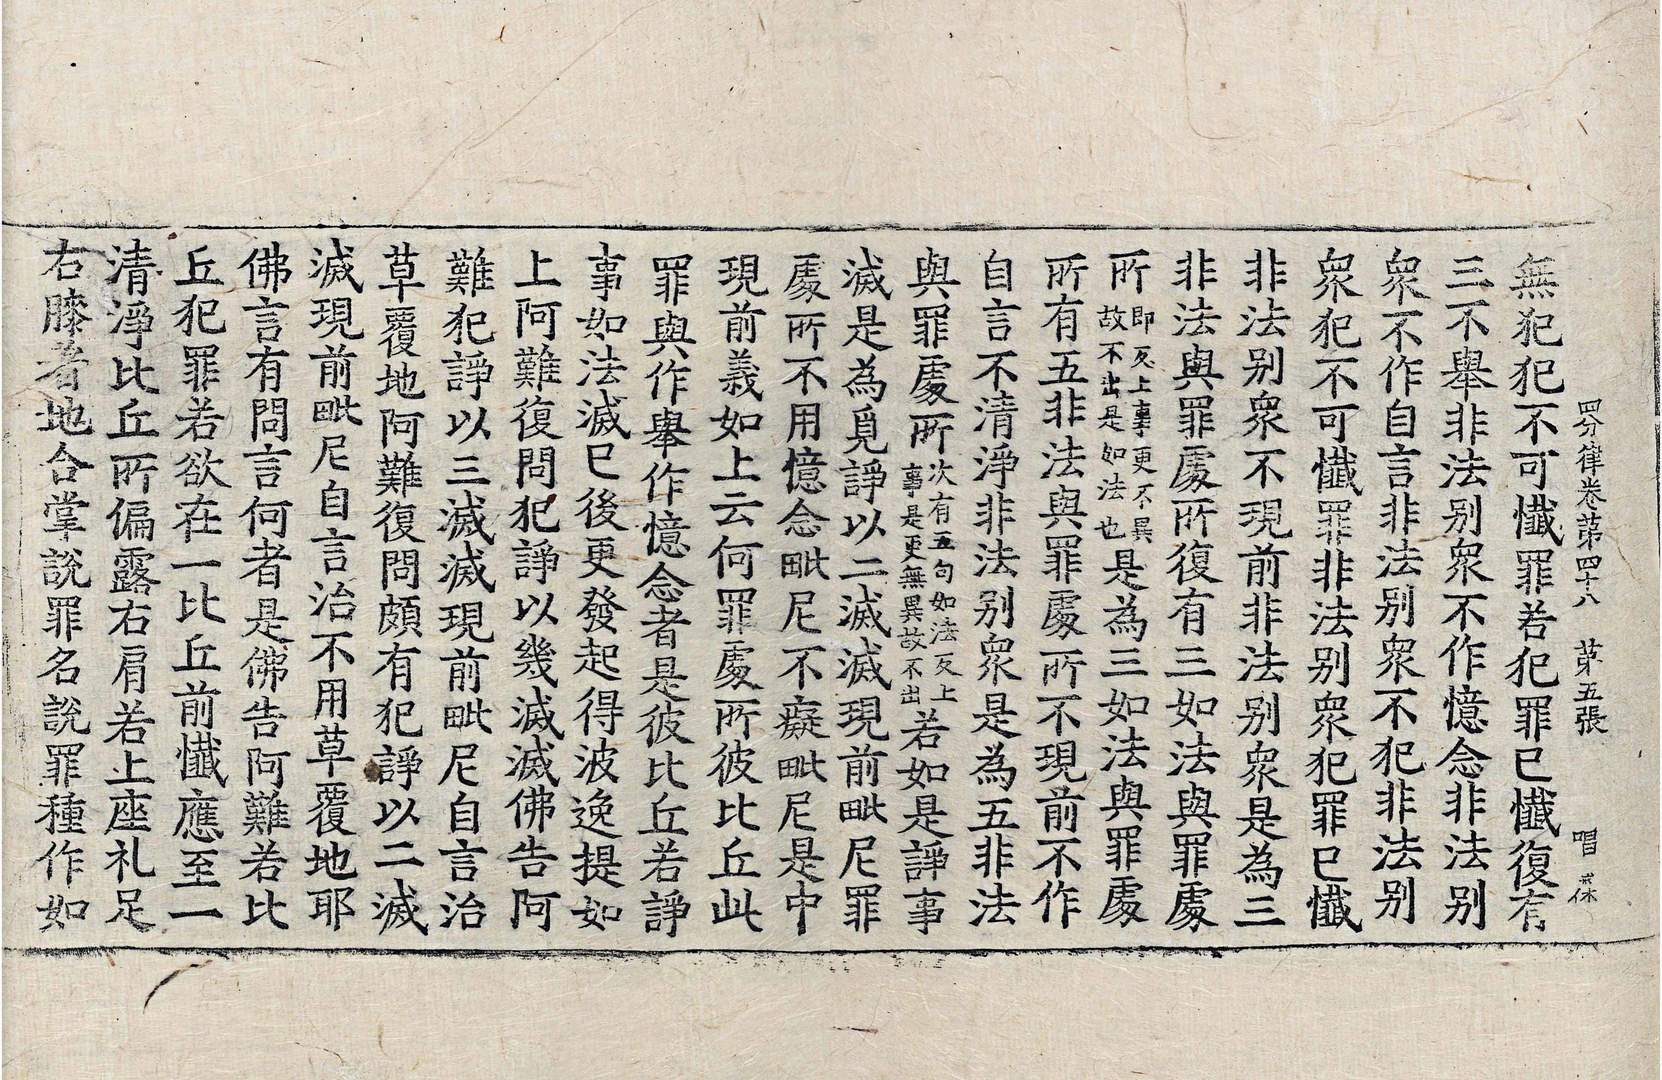 四分律卷第四十八 第五張 唱
無犯犯不可懺罪若犯罪已懺復有
三不舉非法別衆不作憶念非法別
衆不作自言非法別衆不犯非法別
衆犯不可懺罪非法別衆犯罪已懺
非法別衆不現前非法別衆是為三
非法與罪處所復有三如法與罪處
所即反上事更不異故不出是如法也是為三如法與罪處
所有五非法與罪處所不現前不作
自言不清淨非法別衆是為五非法
與罪處所次有五句如法反上事是更無異故不出若如是諍事
滅是為覓諍以二滅滅現前毗尼罪
處所不用憶念毗尼不癡毗尼是中
現前義如上云何罪處所彼比丘此
罪與作舉作憶念者是彼比丘若諍
事如法滅已後更發起得波逸提如
上阿難復問犯諍以幾滅滅佛告阿
難犯諍以三滅滅現前毗尼自言治
草覆地阿難復問頗有犯諍以二滅
滅現前毗尼自言治不用草覆地耶
佛言有問言何者是佛告阿難若比
丘犯罪若欲在一比丘前懺應至一
清淨比丘所偏露右肩若上座礼足
右膝著地合掌說罪名說罪種作如